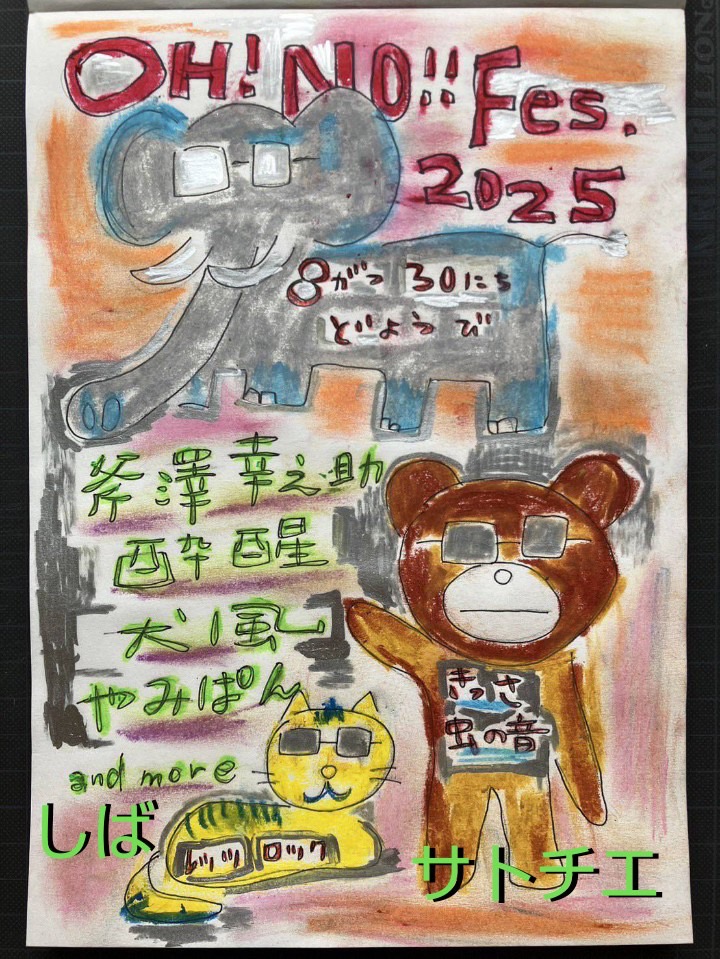 OH! NO!! Fes.
2025
8がつ 30にち
どようび
斧澤 幸之助
酔醒
犬風
やみぱん
きっさ
虫の音
and more
しば
レッツ ロック
サトチエ